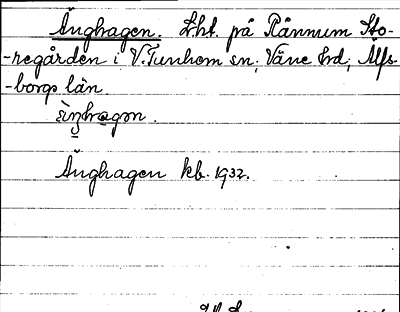 Änghagen. Lht. på Rånnum Sto-
-regården i V. Tunhem sn, Väne hd, Älfs-
-borgs län.
Änghagen kb. 1932.